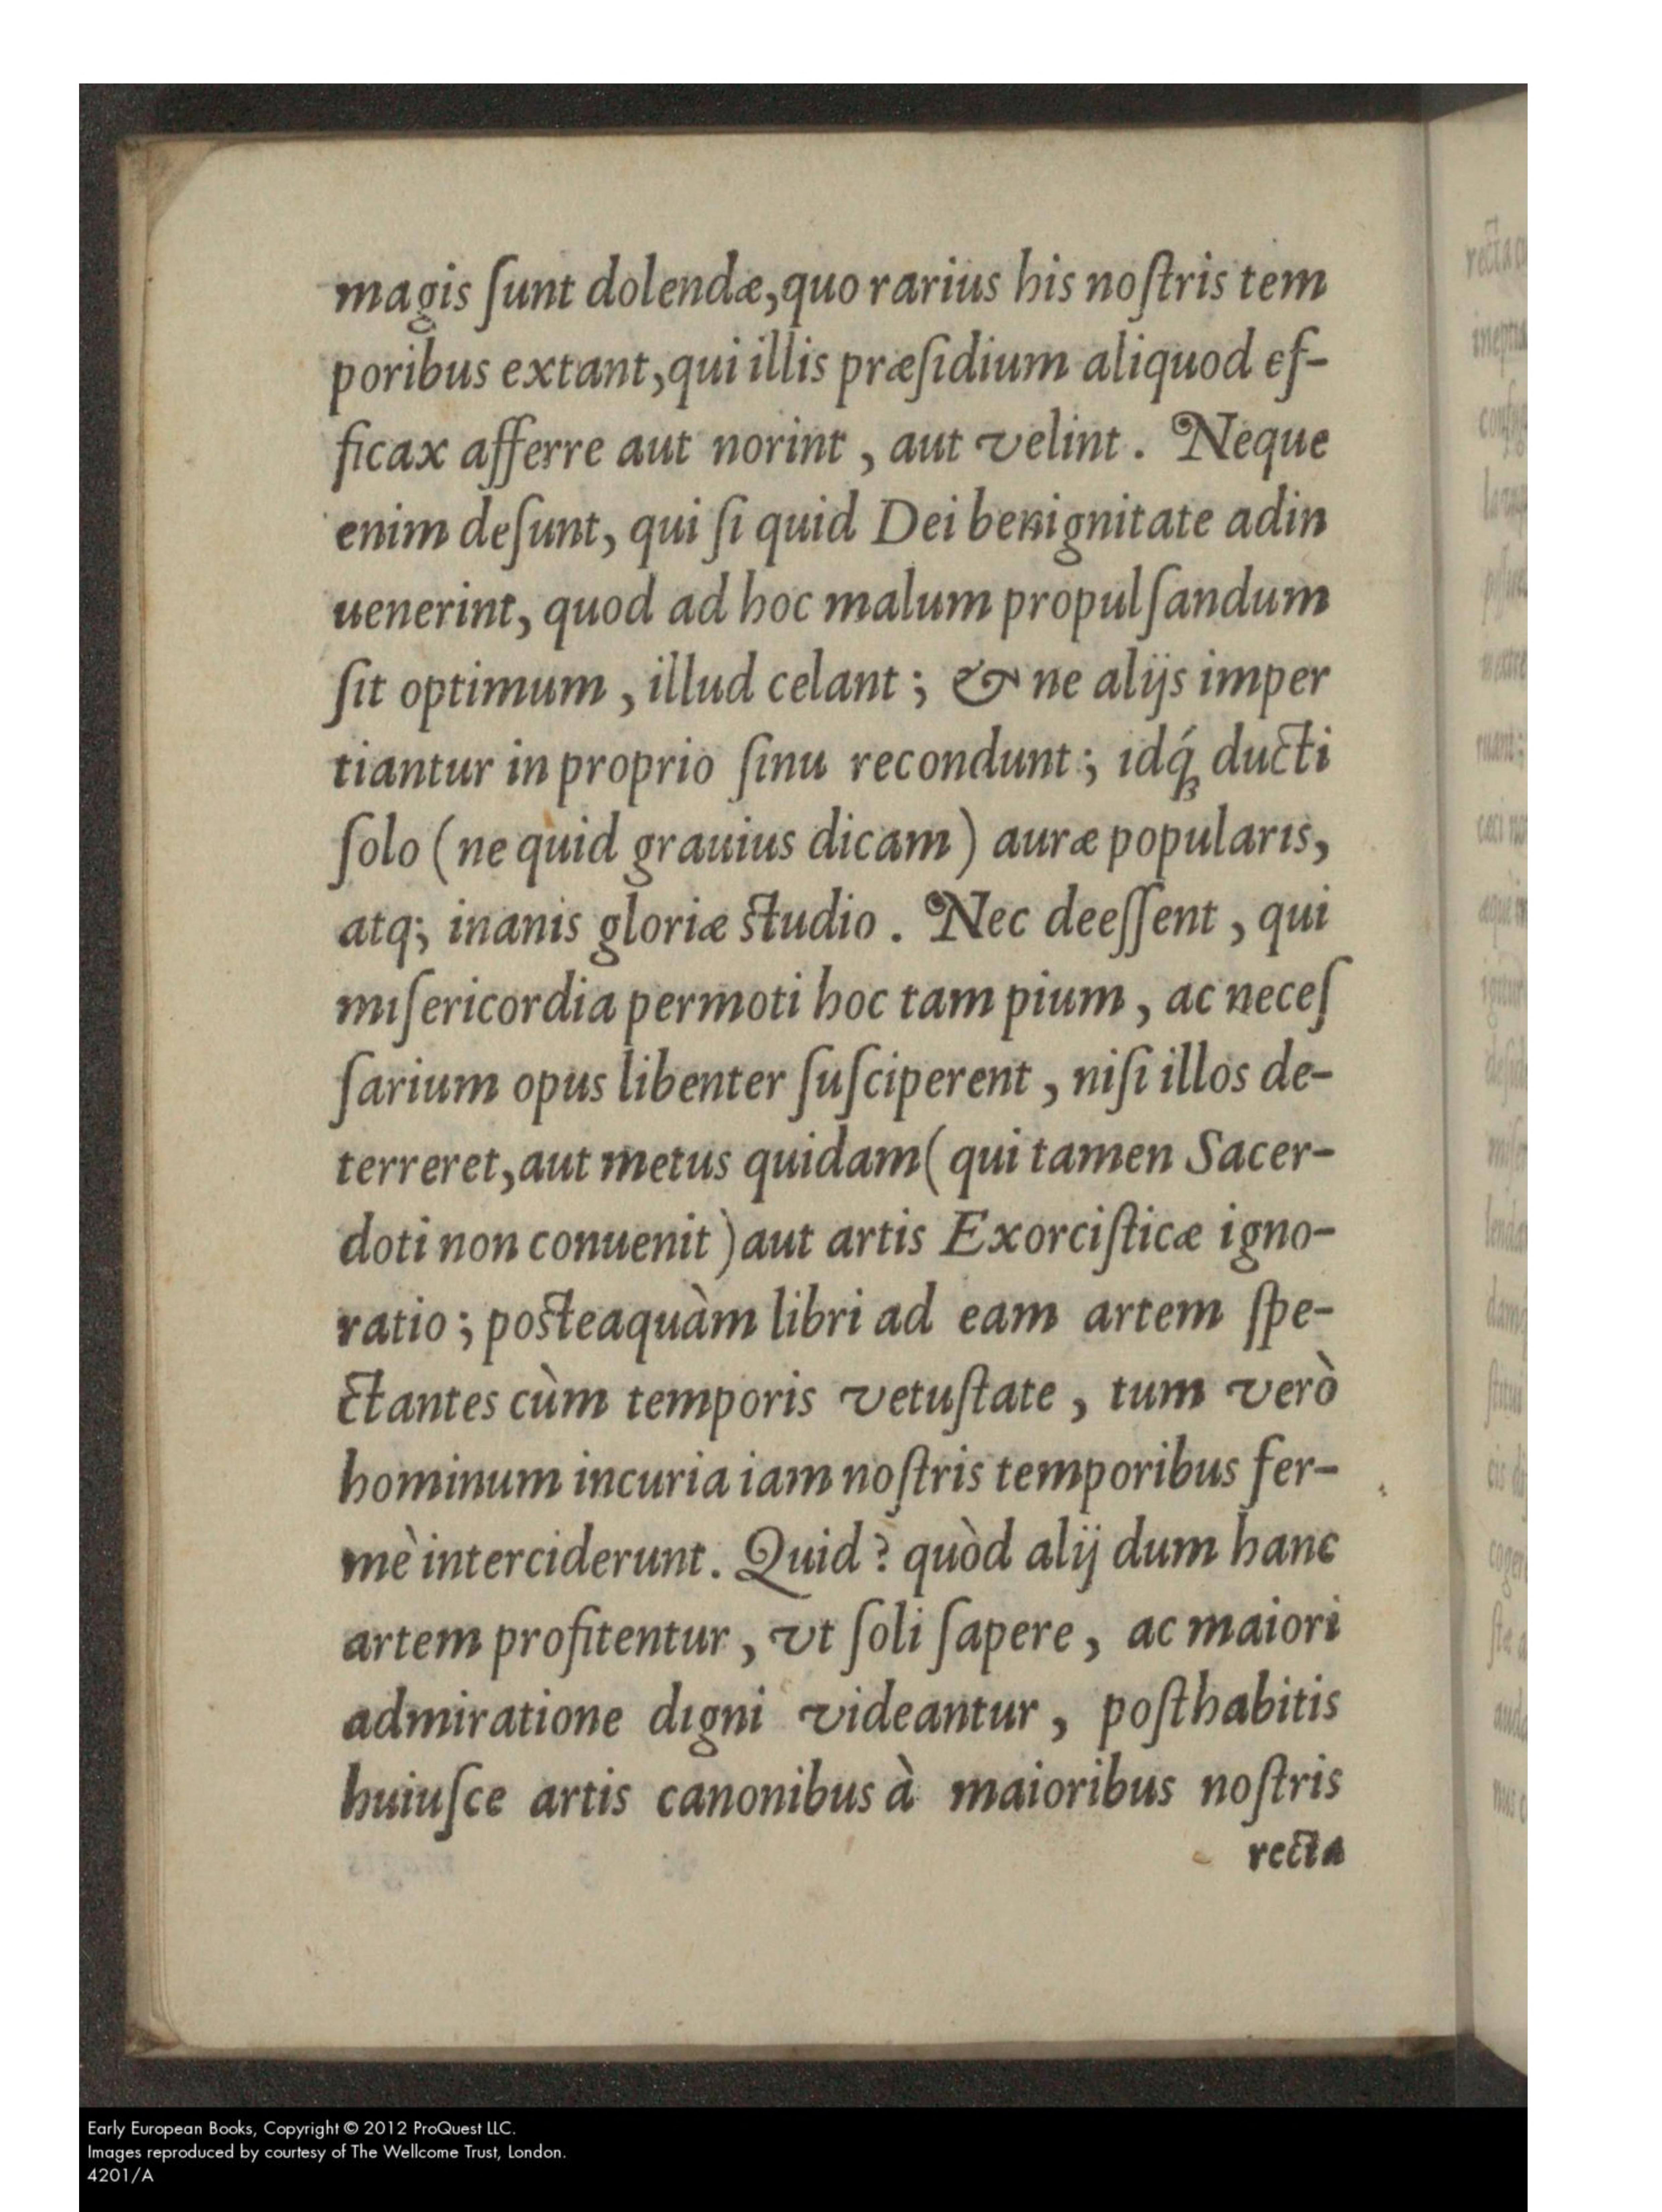 magis ſunt dolendæ,quo rarius his noſtris tem
poribus extant,qui illis præſidium aliquod ef-
ficax afferre aut norint , aut velint . Neque
enim deſunt, qui ſi quid Dei benignitate adin
uenerint, quod ad hoc malum propulſandum
ſit optimum , illud celant ; & ne alijs imper
tiantur in proprio ſinu recondunt ; idq́ꝫ ducti
ſolo ( ne quid grauius dicam ) auræ popularis,
atq; inanis gloriæ ſtudio . Nec deeſſent , qui
miſericordia permoti hoc tam pium , ac neceſ
ſarium opus libenter ſuſciperent , niſi illos de-
terreret,aut metus quidam( qui tamen Sacer-
doti non conuenit ) aut artis Exorciſticæ igno-
ratio ; poſteaquàm libri ad eam artem ſpe-
ctantes cùm temporis vetuſtate , tum verò
hominum incuria iam noſtris temporibus fer-
mè interciderunt . Quid ? quòd alij dum hanc
artem profitentur , vt ſoli ſapere , ac maiori
admiratione digni videantur , poſthabitis
huiuſce artis canonibus à maioribus noſtris
recta
Early European Books, Copyright © 2012 ProQuest LLC.
Images reproduced by courtesy of The Wellcome Trust, London.
4201/A